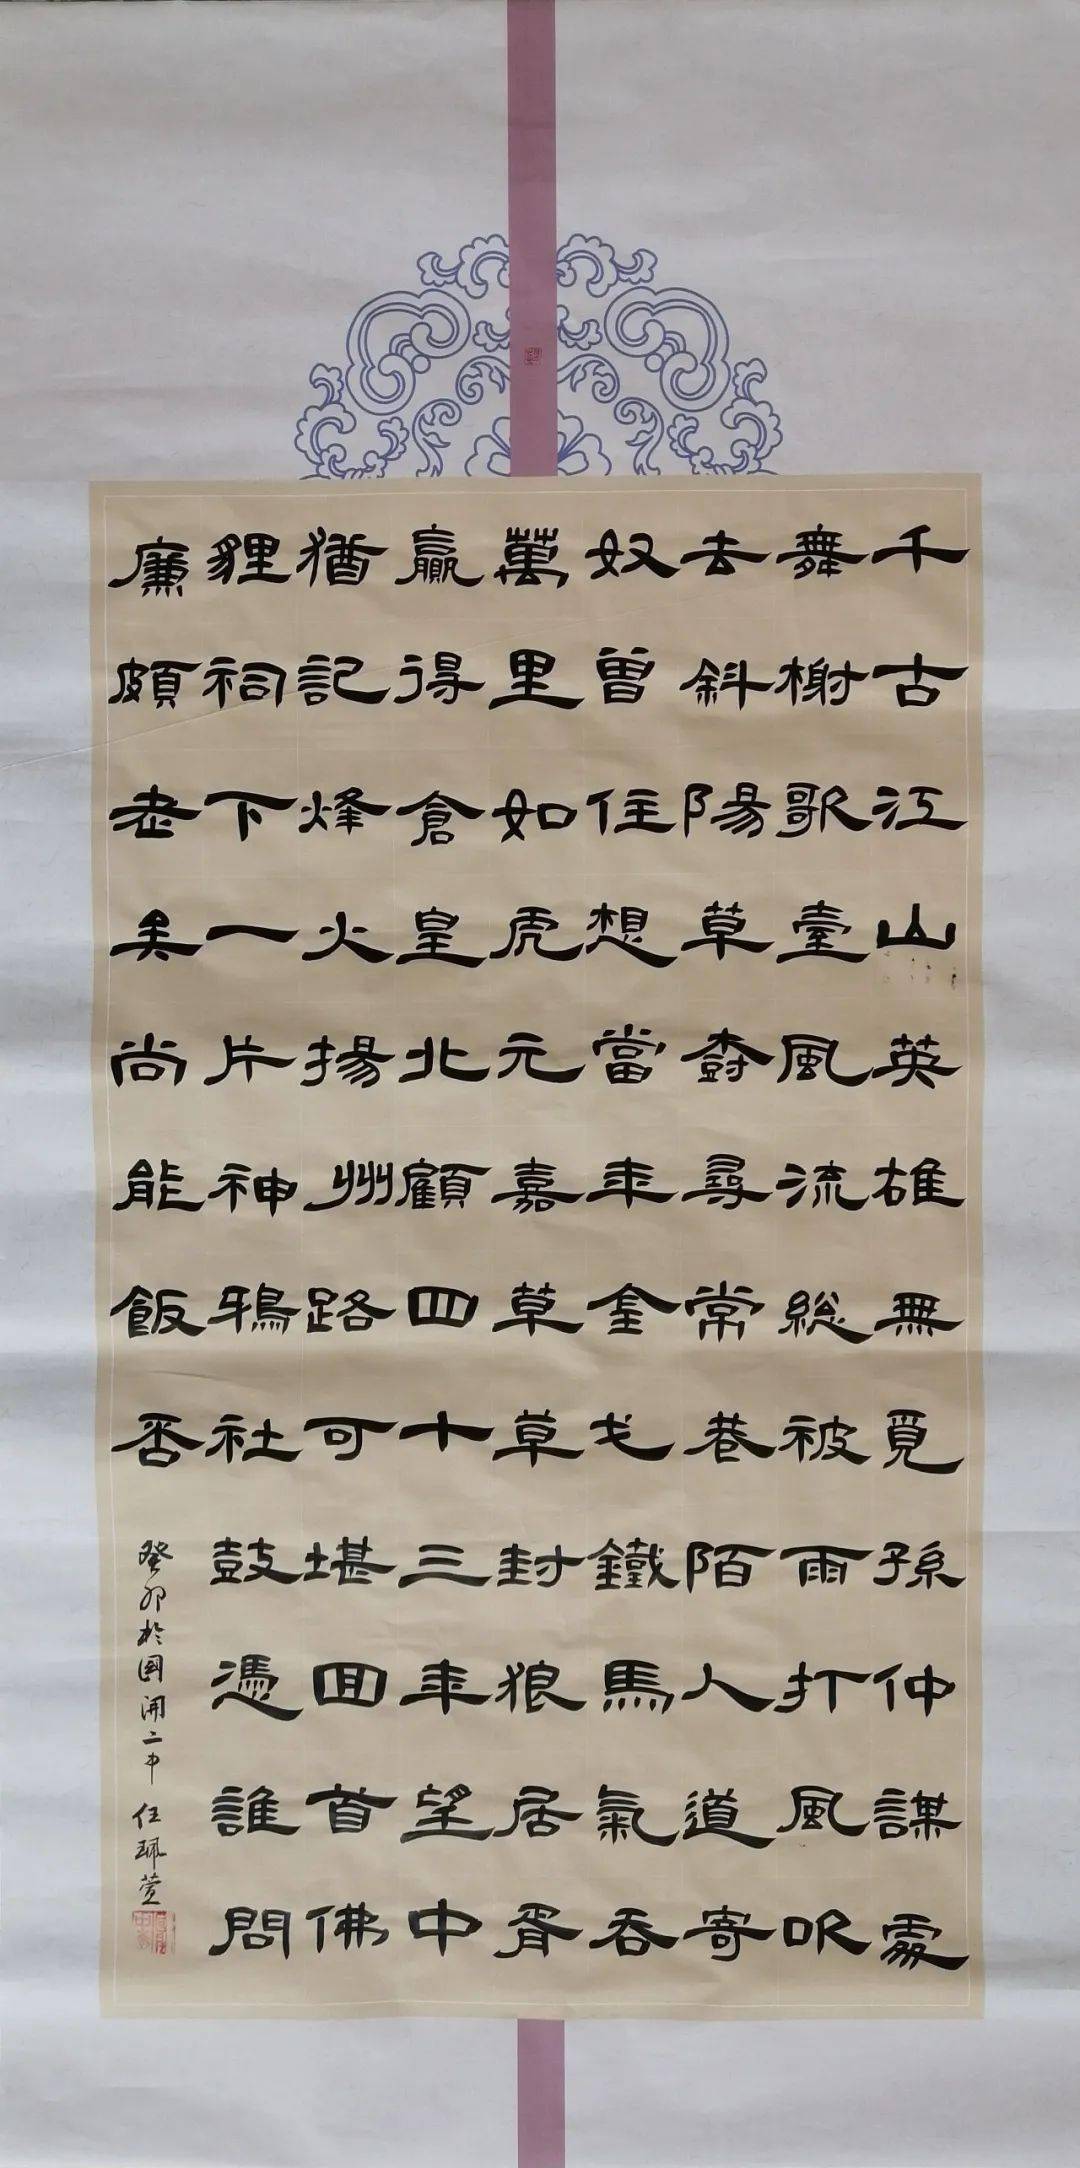 千古江山英雄無覓孫仲謀處
舞榭歌臺風流総被雨打風吹
去斜陽草樹尋常巷陌人道寄
奴曾住想當年金戈鐵馬氣吞
萬里如虎元嘉草草封狼居胥
贏得倉皇北顧四十三年望中
猶記烽火揚州路可堪回首佛
貍祠下一片神鴉社鼓憑誰問
廉頗老矣尚能飯否
癸卯於國開二中 任珮萱